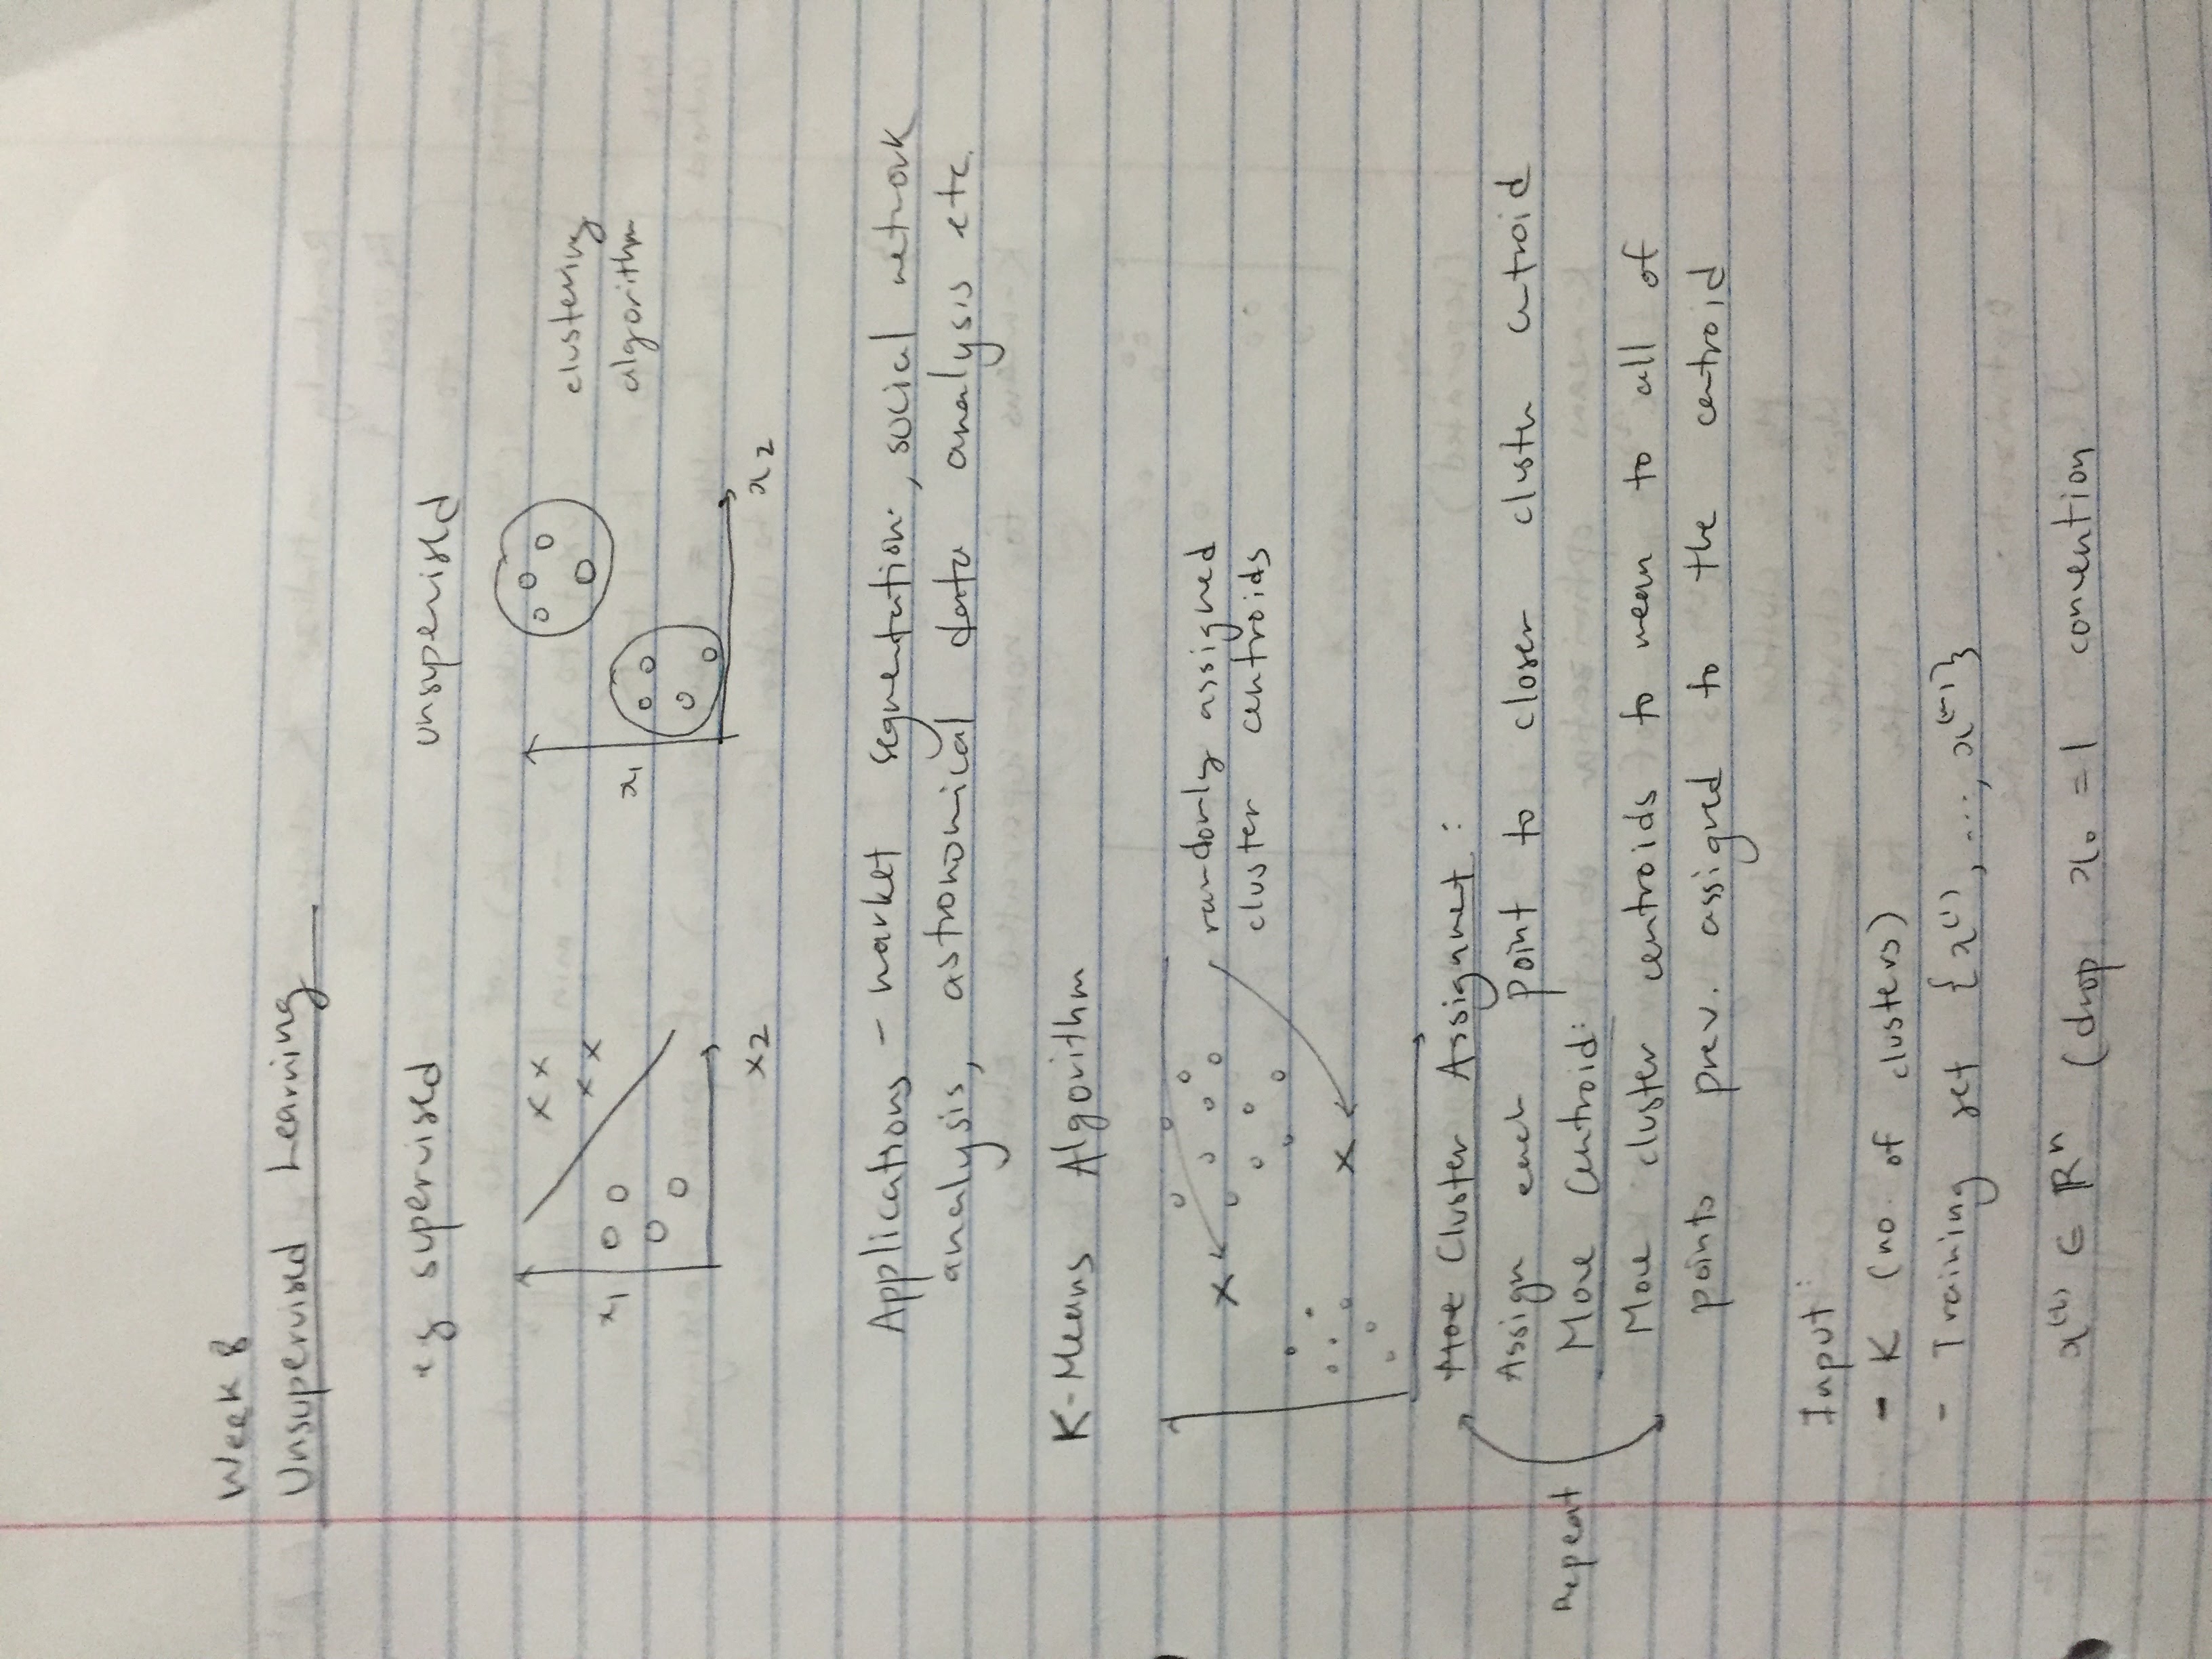 Week 8
Unsupervised Learning
eg supervised
unsupervised
x x
x x
x₁
x2
x₁
x2
clustering
algorithm
Applications - market segmentation, social network
analysis, astronomical data analysis etc.
K-Means Algorithm
x
x
randomly assigned
cluster centroids
Cluster Assignment :
Assign each point to closer cluster centroid
Repeat
Move Centroid:
Move cluster centroids to mean to all of
points prev. assigned to the centroid
Input:
- K (no. of clusters)
- Training set {x⁽¹⁾, ..., x⁽ᵐ⁾}
x⁽ⁱ⁾ ∈ ℝⁿ (drop x₀ = 1 convention